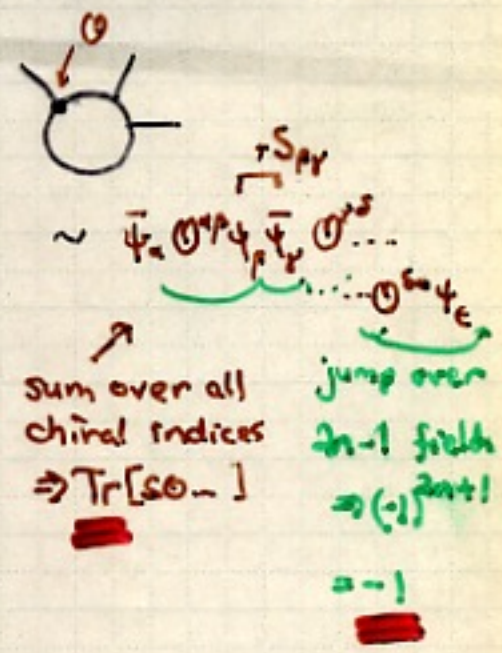 O
S_{βγ}
~ ψ̄_α O^{αβ} ψ_β ψ̄_γ O^{γδ} ....
.....O ψ_ε
sum over all
chiral indices
⇒ Tr[SO...]
jump over
2n-1 fields
⇒ (-1)^{2n+1}
= -1